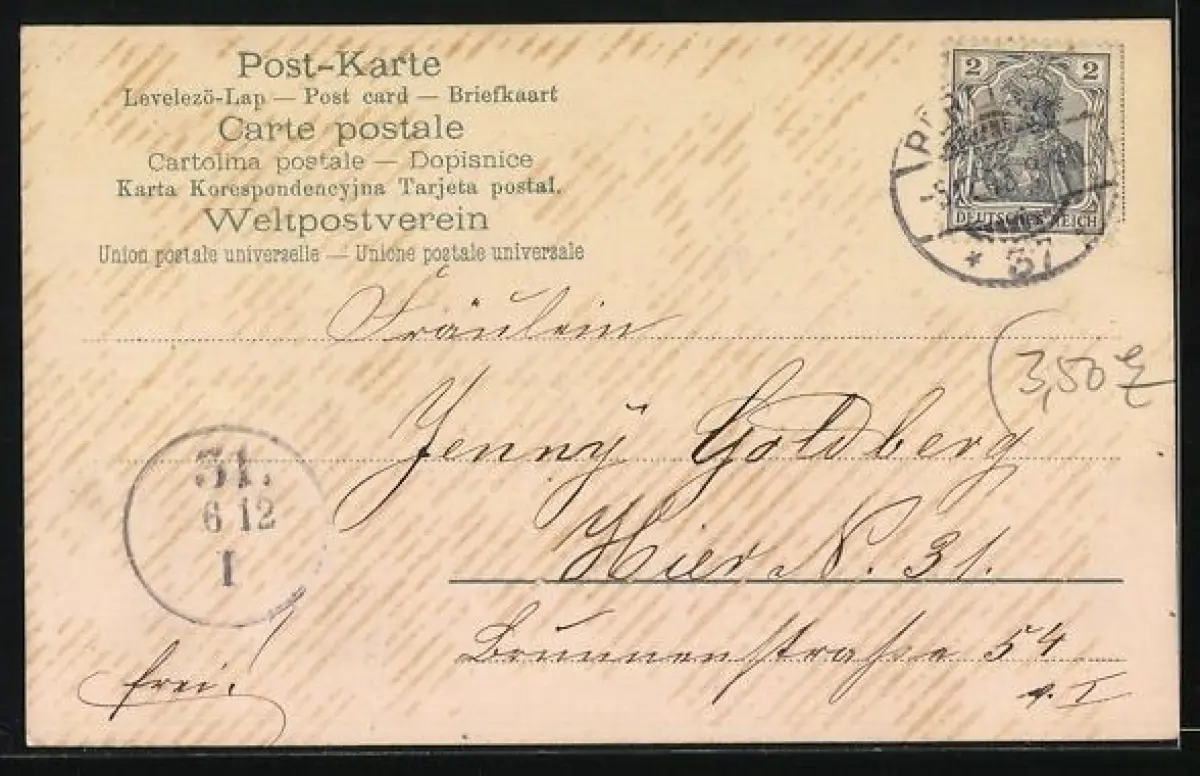 Post-Karte
Levelezö-Lap — Post card — Briefkaart
Carte postale
Cartolina postale — Dopisnice
Karta Korespondencyjna Tarjeta postal.
Weltpostverein
Union postale universelle — Unione postale universale
2 2
DEUTSCHES REICH
* 37
Fräulein
3,50
Jenny Goldberg
31.
6 12
I
Hier N. 31.
Brunnenstrasse 54
v. I
frei!